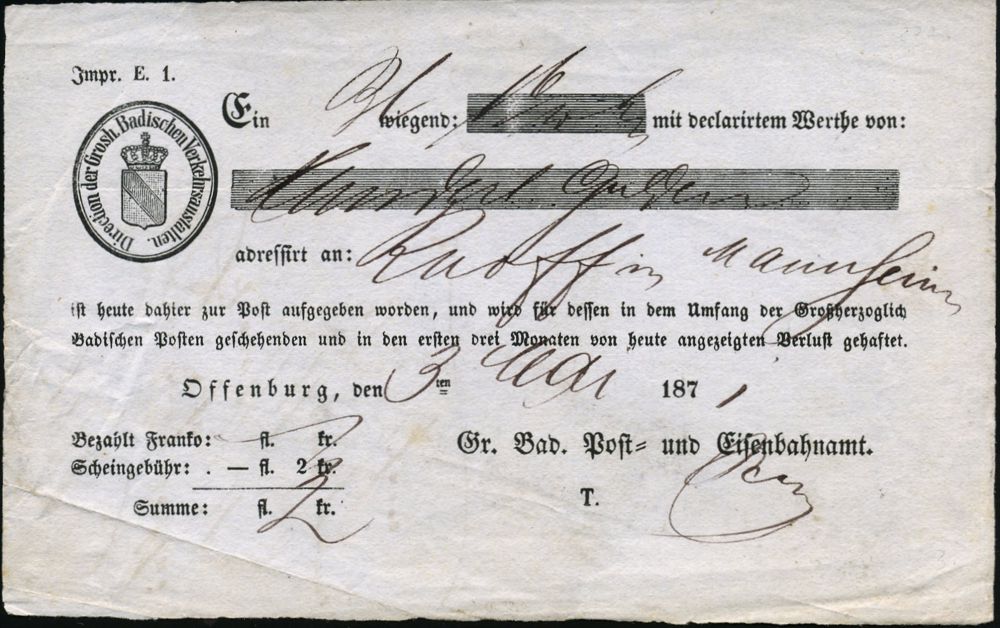 Impr. E. 1.
Direction der Grosh. Badischen Verkehrsanstalten.
Ein wiegend: mit declarirtem Werthe von:
Gulden
adressirt an: Knoff in Mannheim
ist heute dahier zur Post aufgegeben worden, und wird für dessen in dem Umfang der Großherzoglich
Badischen Posten geschehenden und in den ersten drei Monaten von heute angezeigten Verlust gehaftet.
Offenburg, den 3ten Mai 1871
Bezahlt Franko: fl. kr.
Scheingebühr: . — fl. 2 kr.
Summe: fl. 2 kr.
Gr. Bad. Post- und Eisenbahnamt.
T.